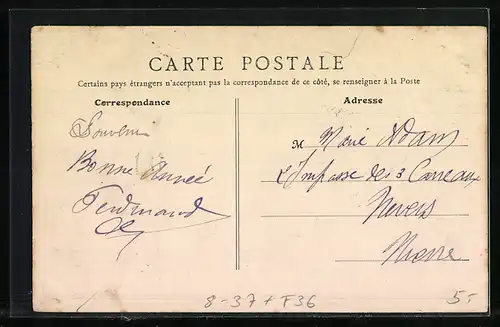 CARTE POSTALE
Certains pays étrangers n'acceptant pas la correspondance de ce côté, se renseigner à la Poste
Correspondance
Souvenir
Bonne Année
Ferdinand
Adresse
M Marie Adam
Impasse des 3 Carreaux
Nevers
Nievre
8-37 + F36
5-